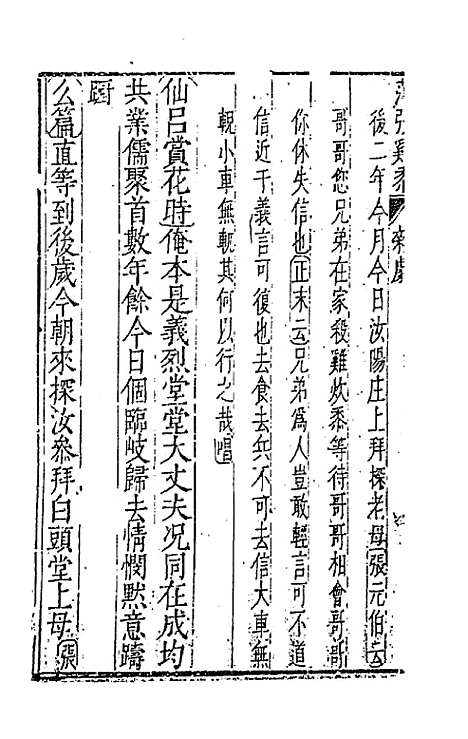 後二年今月今日汝陽庄上拜探老母張元伯云
哥哥您兄弟在家殺雞炊黍等待哥哥相會哥哥
你休失信也正末云兄弟爲人豈敢輕言可不道
信近于義言可復也去食去兵不可去信大車無
輗小車無軏其何以行之哉唱
仙呂賞花時俺本是義烈堂堂大丈夫况同在成均
共業儒聚首數年餘今日個臨岐歸去情惘默意躊
躕
么篇直等到後歲今朝來探汝叅拜白頭堂上母張